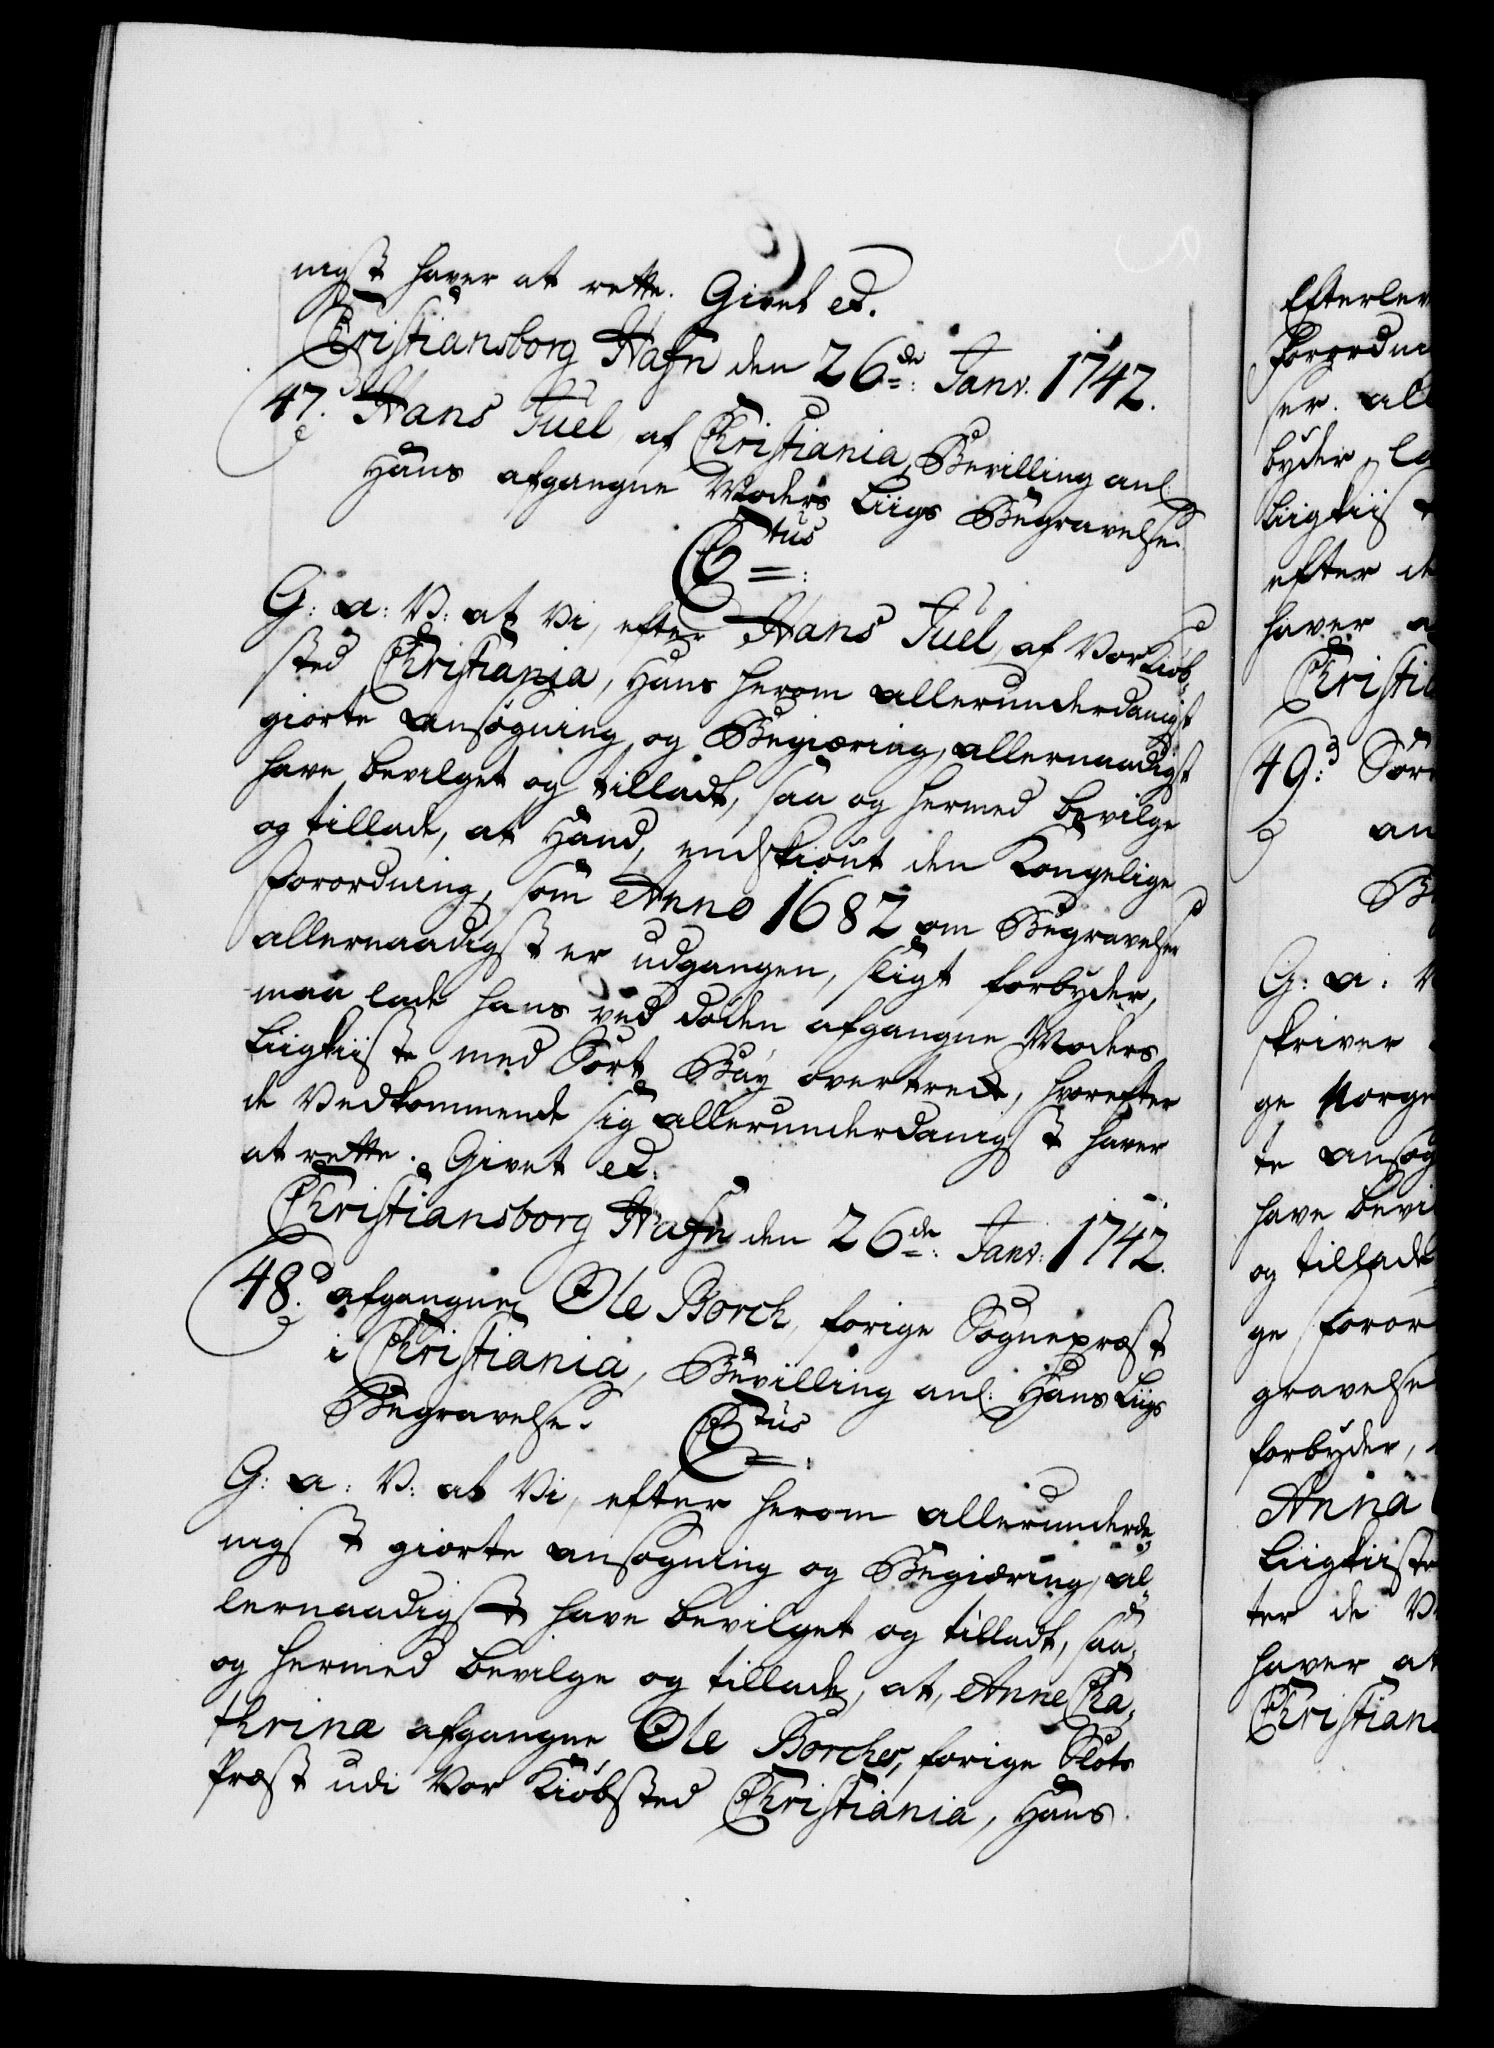 nigst haver at rette. Givet ec.
Christiansborg Hafn den 26de Janv. 1742.
47. Hans Juel af Christiania, Bevilling anl:
Hans afgangne Moders Liigs Begravelse.
Ctus
G: a: V: at Vi, efter Hans Juel, af Vor Kiøb-
sted Christiania, Hans herom allerunderdanigst
giorte ansøgning og Begiæring, allernaadigst
have bevilget og tilladt, saa og hermed bevilge
og tillade, at Hand, endskiønt den Kongelige
Forordning, som Anno 1682 om Begravelser
allernaadigst er udgangen, sligt forbyder,
maa lade hans ved døden afgangne Moders
Liigkiiste med Sort Bay overtrecke, hvorefter
de Vedkommende sig allerunderdanigst haver
at rette. Givet ec:
Christiansborg Hafn den 26de: Janv: 1742.
48. afgangne Ole Borch, forige Sognepræst
i Christiania, Bevilling anl: Hans Liigs
Begravelse. Ctus
G: a: V: at Vi, efter herom allerunderda-
nigst giorte ansøgning og Begiæring, al-
lernaadigst have bevilget og tilladt, saa
og hermed bevilge og tillade, at, Anne Ca-
thrina afgangne Ole Borches, forige Slots
Præst udi Vor Kiøbsted Christiania, Hans
Efterlev
Forordni
ser. all
byder, la
Liigkiist
efter de
haver a
Christia
49. Søre
an
Be
G: a: V
skriver
ge Norge
te ansøg
have bevi
og tillade
ge Foror
gravelse
forbyder,
Anna
Liigkiiste
ter de V
haver at
Christian